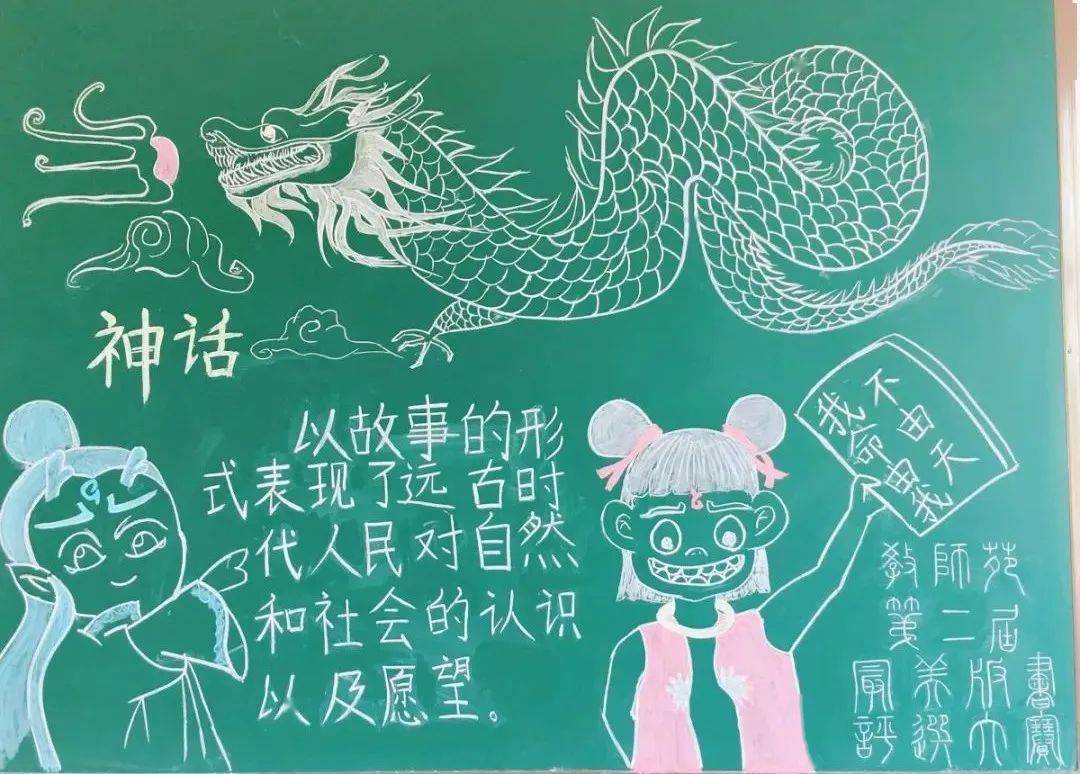 神话
以故事的形
式表现了远古时
代人民对自然
和社会的认识
以及愿望。
我命由我
不由天
教師苑
第二屆
最美版書
評選大